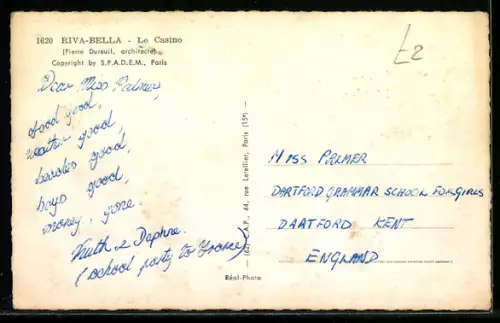 1620 RIVA-BELLA - Le Casino
(Pierre Dureuil, architecte)
Copyright by S.P.A.D.E.M., Paris
£2
Dear Miss Palmer,
food good,
weather good
beaches good,
boys good,
money, gone.
Ruth & Daphne.
(school party to France)
C.A.P., 44, rue Letellier, Paris (15e)
Réal-Photo
MISS PALMER
DARTFORD GRAMMAR SCHOOL FOR GIRLS
DARTFORD KENT
ENGLAND